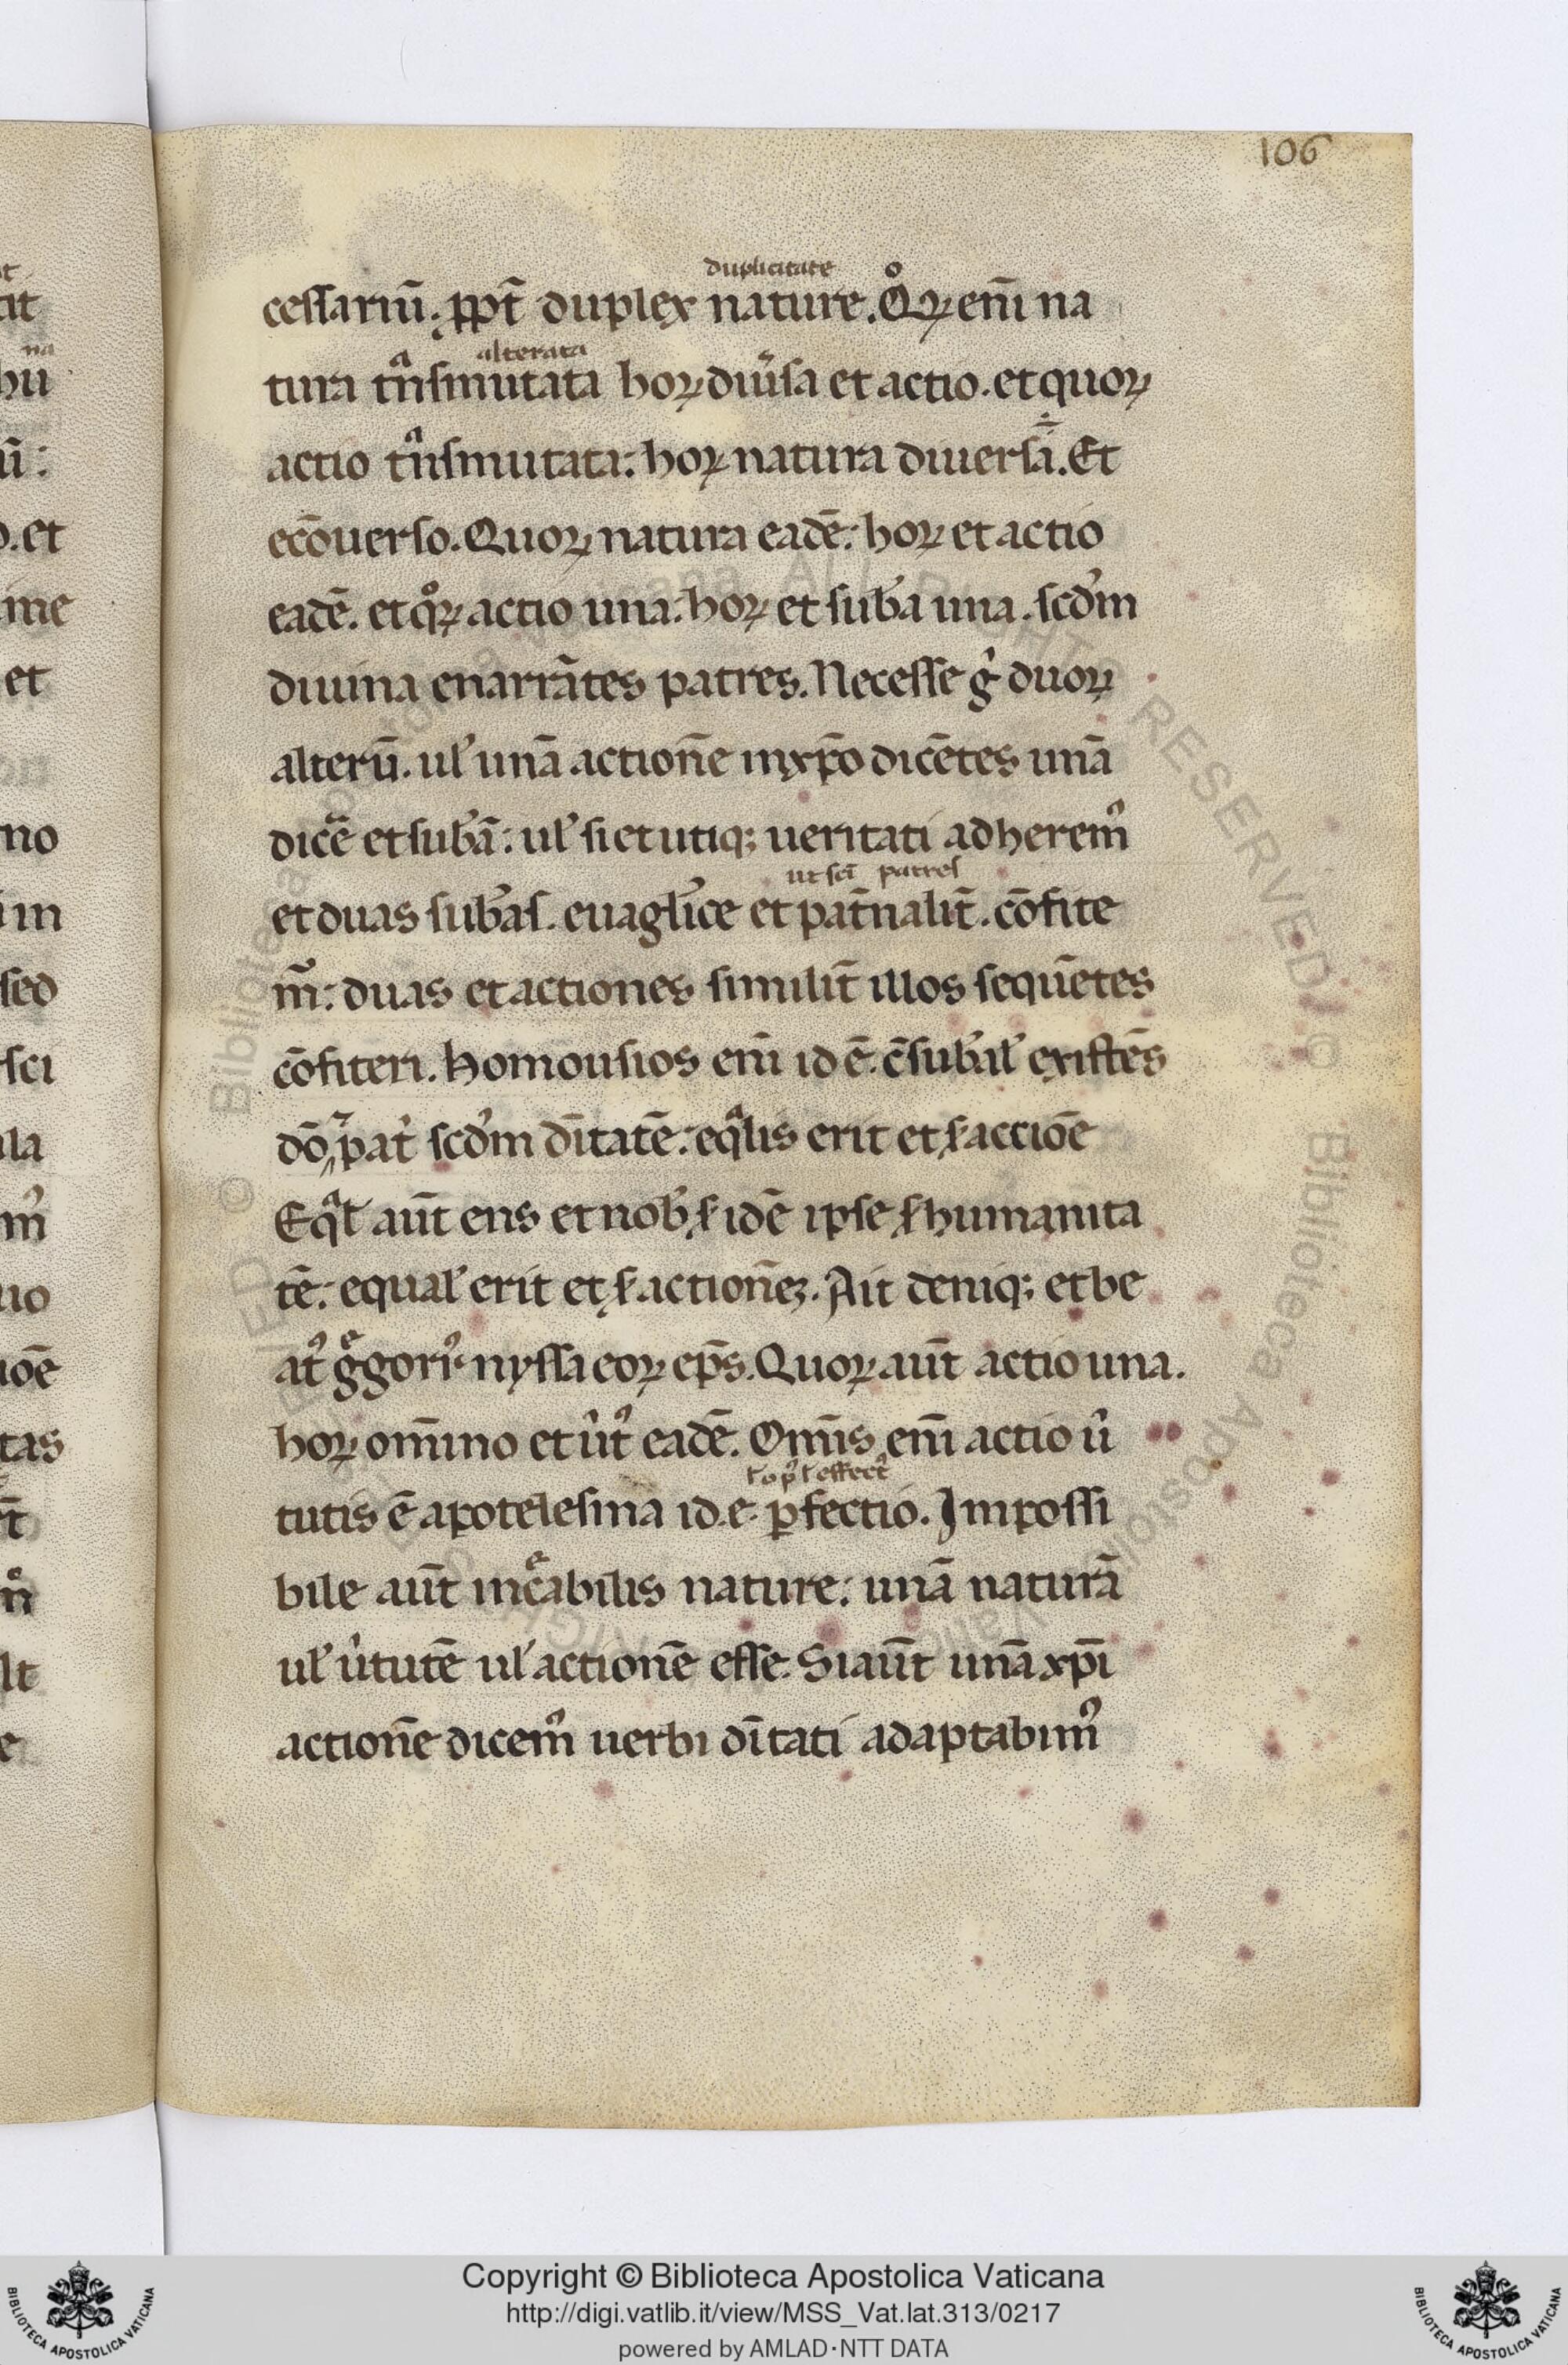 106
duplicitate
cessariū. ꝓpt̄ duplex nature. Qͦꝝ eni̅ na
alterata
tura tͣnsmutata hoꝝ diu̾sa et actio. et quoꝝ
actio tͣnsmutata: hoꝝ natura diuersa. Et
ecōuerso. Quoꝝ natura eadē: hoꝝ et actio
eadē. et qͦꝝ actio una: hoꝝ et sub̾a una. scd̾m
diuina enarrātes patres. Necesse gͥ duoꝝ
alterū. ul̾ unā actionē inxp̄o dicētes unā
dicē et sub̾ā: ul̾ si et utiqꝫ ueritati adherem᾽
ut sc̄i patres
et duas sub̾as. euagl̾ice et pat̄nalit̄. cōfite
m̄: duas et actiones similit̄ illos sequētes
cōfiteri. homousios eni̅ id ē. c̄sub̾il̾ existēs
dō pat̾ scd̾m dītatē: eqͣlis erit et ẜ acciōē
Eqͣl̾ aut̄ ens et nob̾ ẜ idē ipse ẜ humanita
tē: equal̾ erit et ẜ actionēꝫ. Ait deniqꝫ et be
at᾽ gͤgori᾽ nyssa eoꝝ ep̄s. Quoꝝ aut̄ actio una.
hoꝝ om̄ino et uͥt᾽ eadē. Om̄is eni̅ actio uͥ
ł op᾽ ł effect᾽
tutis ē apotelesma id.e. ꝑfectio. Impossi
bile aut̄ incͤabilis nature: unā naturā
ul̾ uͥtutē ul̾ actionē esse. Si aut̄ unā xp̄i
actionē dicem᾽ uerbi dītati adaptabim᾽
na
et
sed
sci
Copyright © Biblioteca Apostolica Vaticana
http://digi.vatlib.it/view/MSS_Vat.lat.313/0217
powered by AMLAD·NTT DATA
BIBLIOTECA APOSTOLICA VATICANA
BIBLIOTECA APOSTOLICA VATICANA